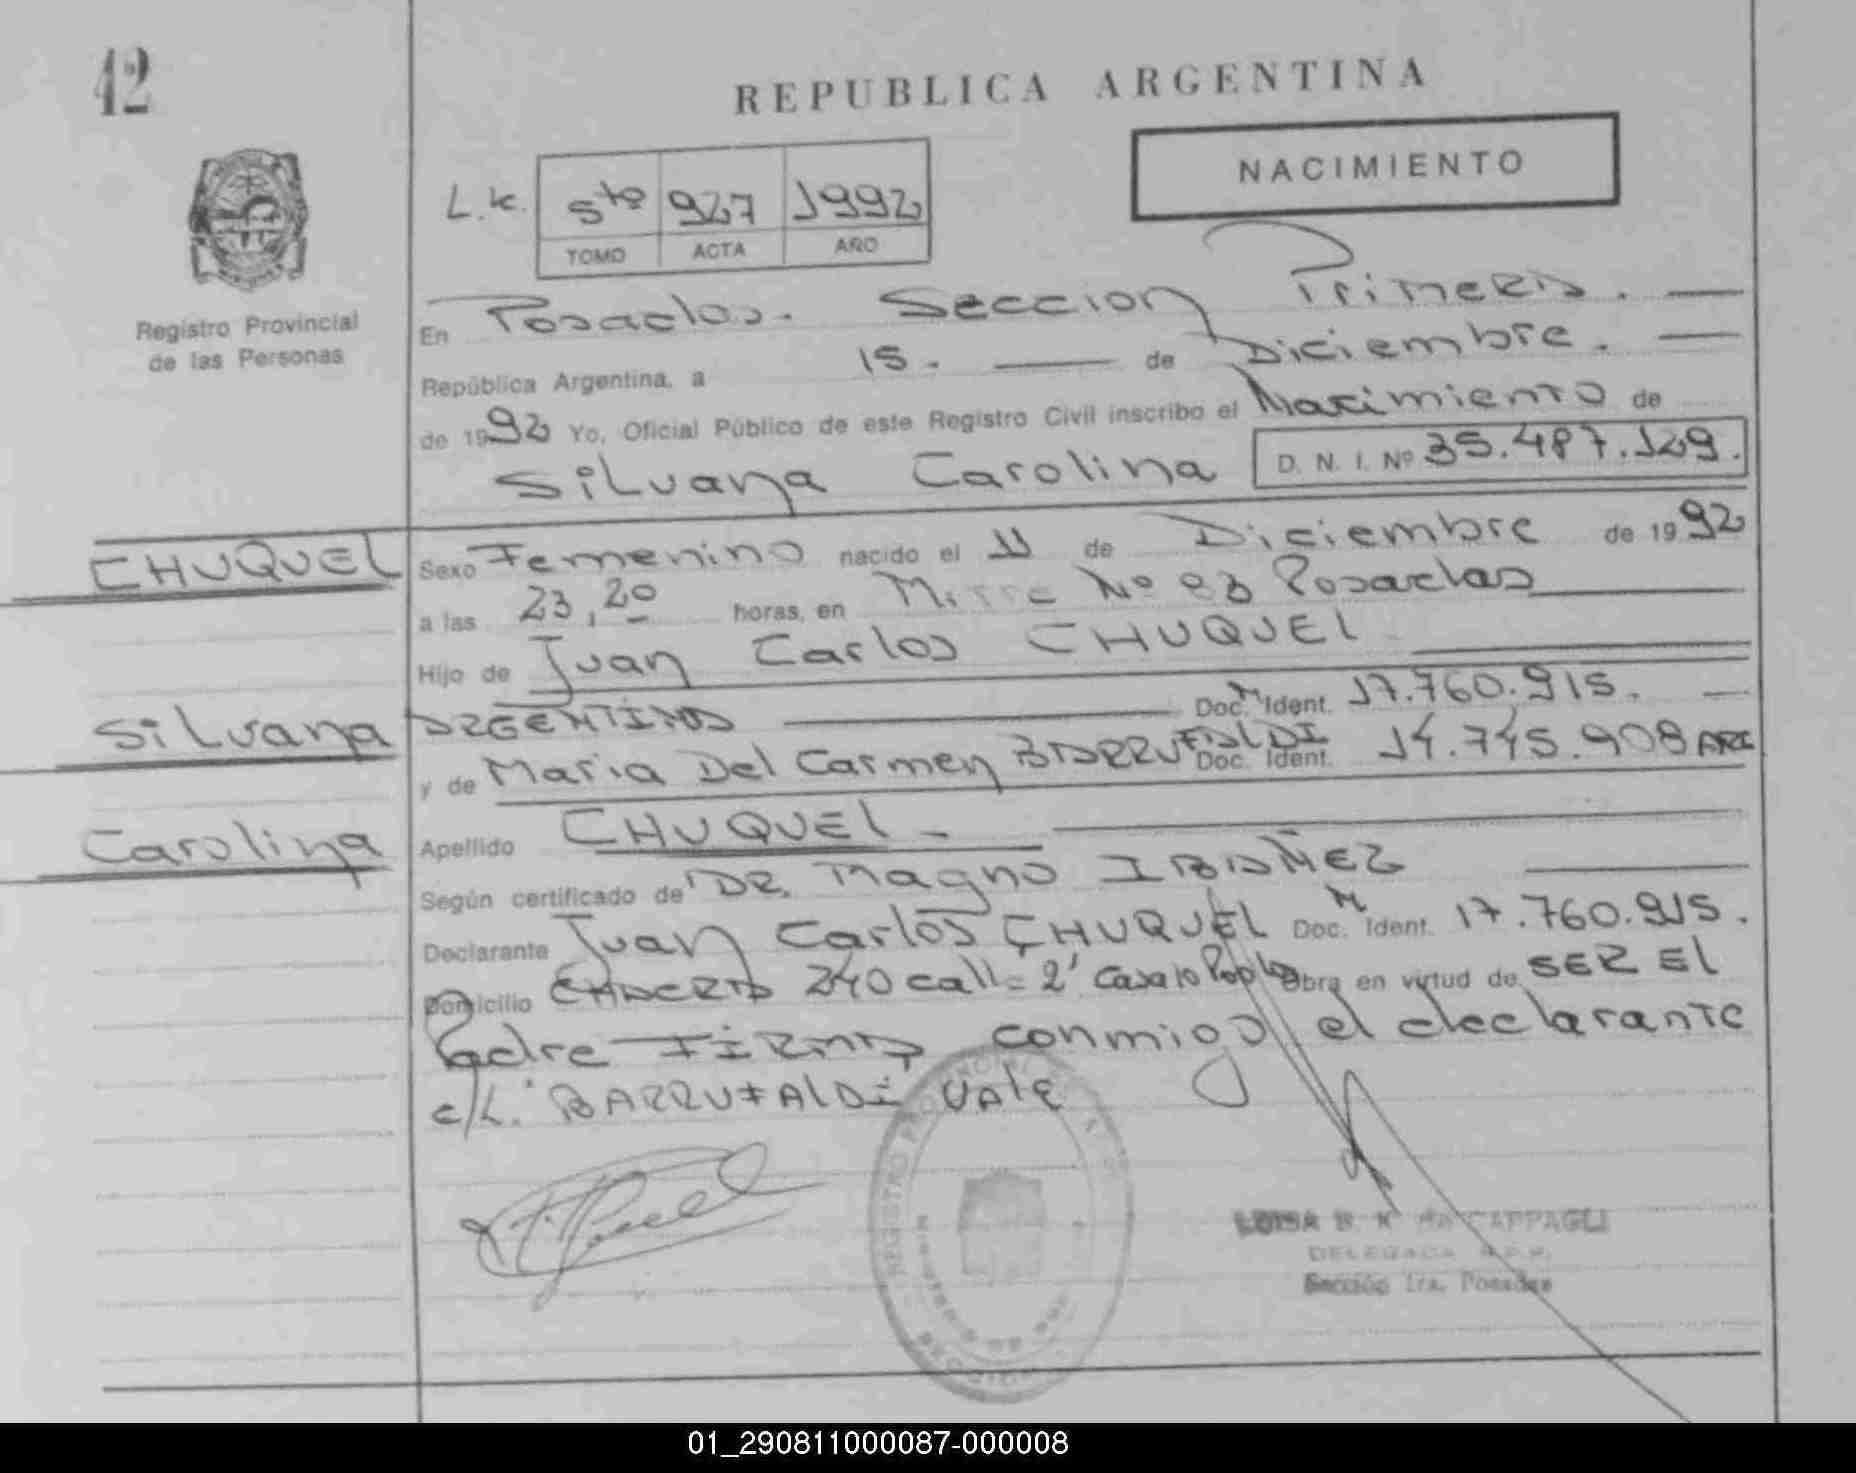 42
REPUBLICA ARGENTINA
NACIMIENTO
L.k. 5to 927 1992
TOMO ACTA AÑO
Registro Provincial
de las Personas
En Posadas. Seccion Primera.
República Argentina, a 15. de Diciembre.
de 1992 Yo, Oficial Público de este Registro Civil inscribo el Nacimiento de
Silvana Carolina D. N. I. Nº 35.487.129.
CHUQUEL
Sexo Femenino nacido el 11 de Diciembre de 1992
a las 23,20 horas, en Mitre Nº 83 Posadas
Hijo de Juan Carlos CHUQUEL
Silvana
ARGENTINO Doc. M Ident. 17.760.915.
y de Maria Del Carmen BARRUFALDI Doc. Ident. 14.745.908 ARG
Carolina
Apellido CHUQUEL
Según certificado de DR. Magno IBAÑEZ
Declarante Juan Carlos CHUQUEL Doc. M Ident. 17.760.915.
Domicilio 240 calle 2 casa 10 Obra en virtud de SER El
Padre FIRMA conmigo el declarante
e/L. BARRUFALDI VAlE
REGISTRO
LUISA B. CAPPAGLI
DELEGADA R.P.P.
Sección 1ra. Posadas
01_290811000087-000008